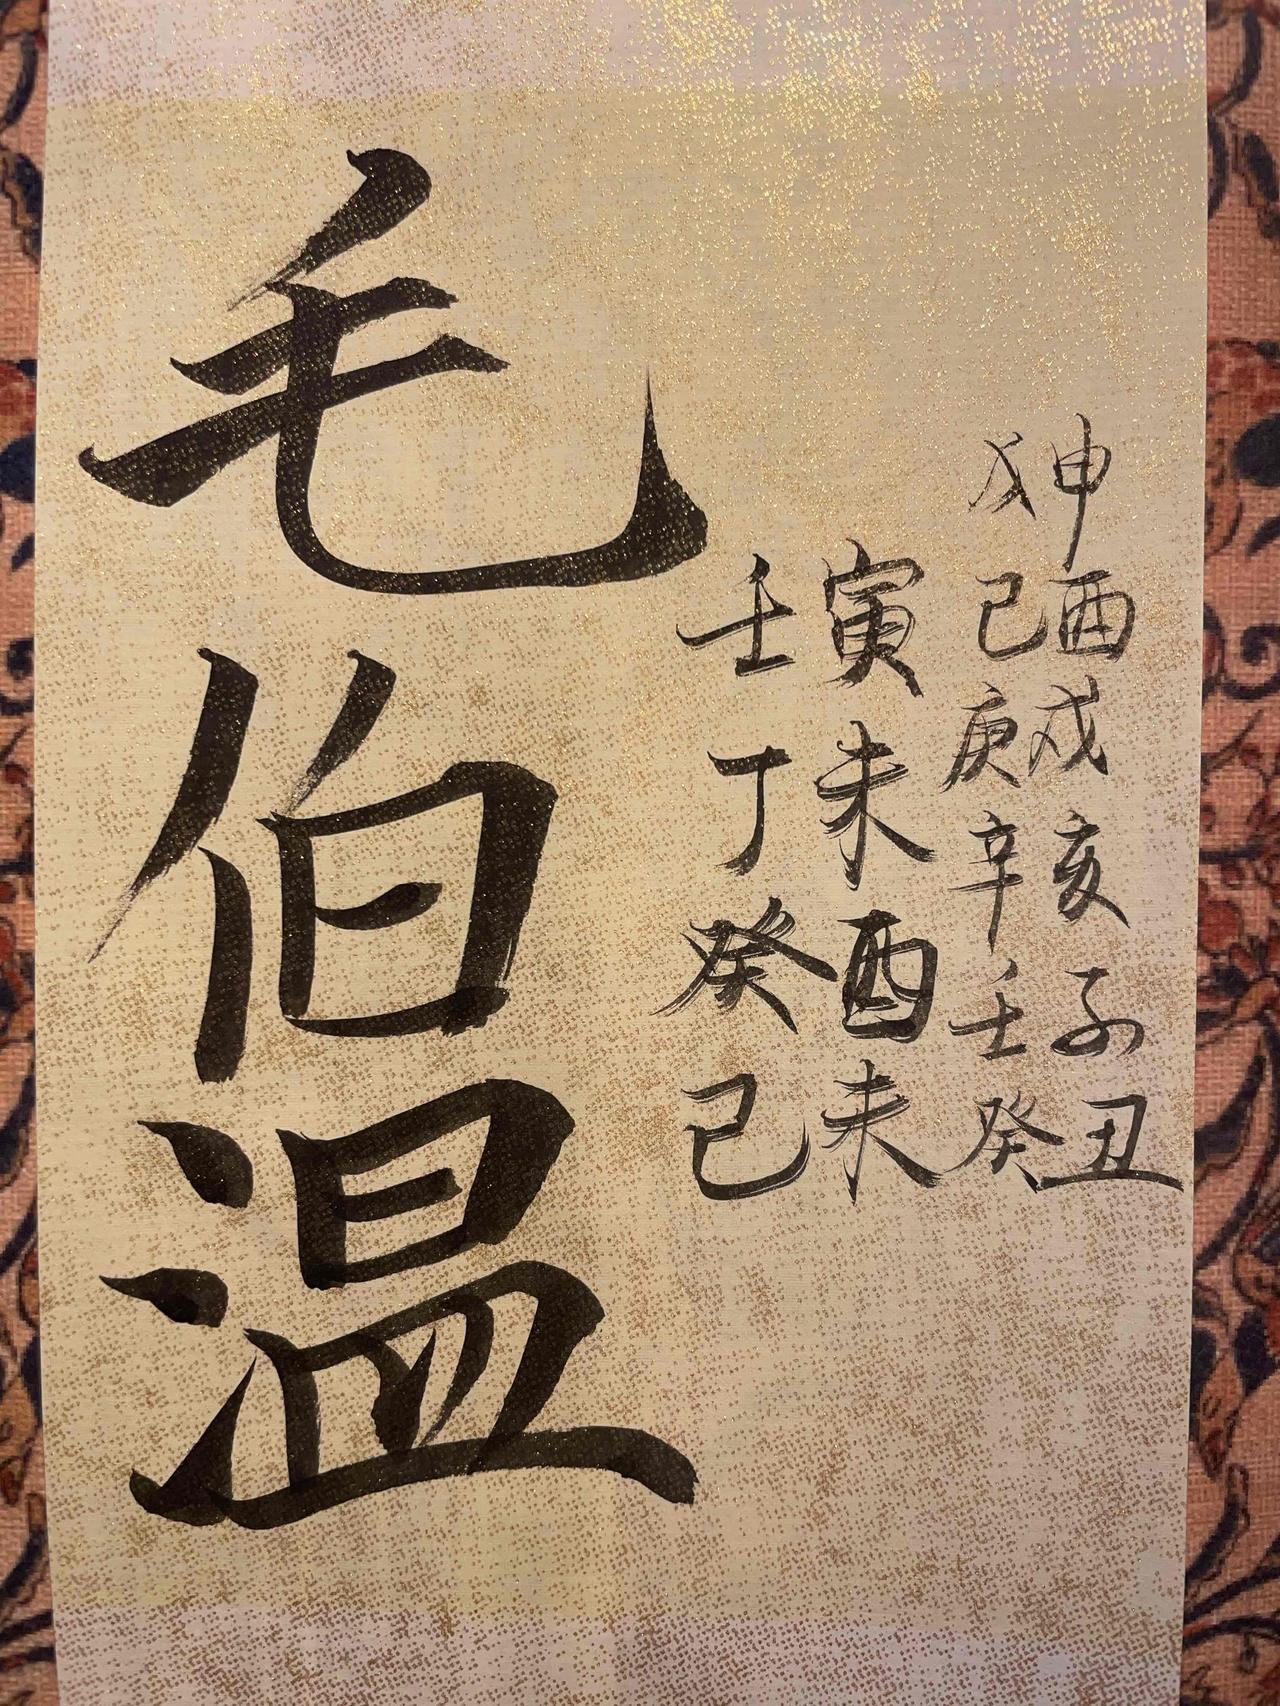 毛伯温
壬寅
丁未
癸酉
己未
戊申
己酉
庚戌
辛亥
壬子
癸丑